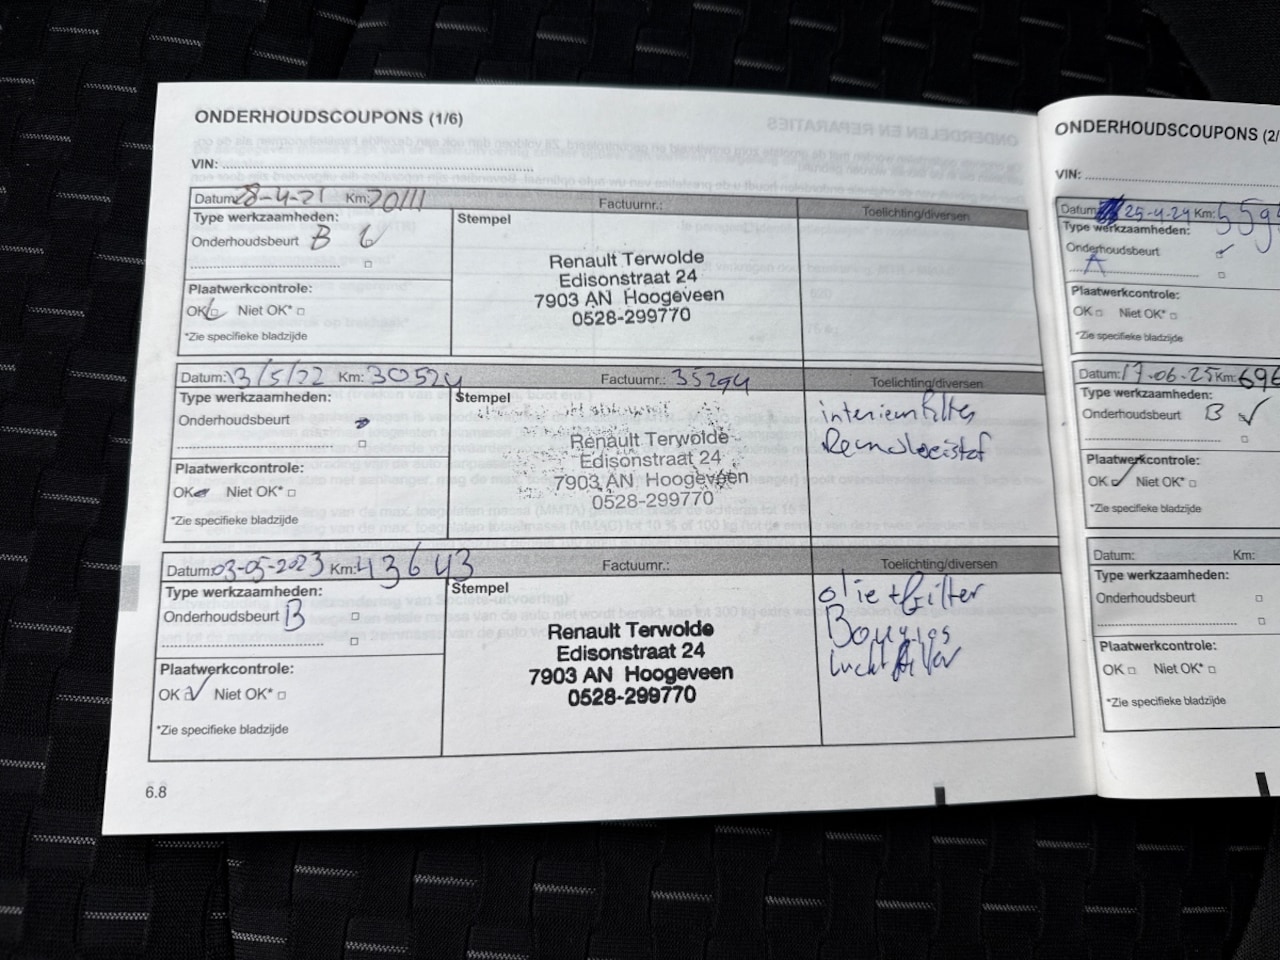 ONDERHOUDSCOUPONS (1/6)
VIN:
Datum: 28-4-21 Km: 20111 Factuurnr.: Toelichting/diversen
Type werkzaamheden: Stempel
Onderhoudsbeurt B
Renault Terwolde
Edisonstraat 24
7903 AN Hoogeveen
0528-299770
Plaatwerkcontrole:
OK Niet OK*
*Zie specifieke bladzijde
Datum: 13/5/22 Km: 30524 Factuurnr.: 35294 Toelichting/diversen
Type werkzaamheden: Stempel
Onderhoudsbeurt
Renault Terwolde
Edisonstraat 24
7903 AN Hoogeveen
0528-299770
interieurfilter
Remvloeistof
Plaatwerkcontrole:
OK Niet OK*
*Zie specifieke bladzijde
Datum: 03-05-2023 Km: 43643 Factuurnr.: Toelichting/diversen
Type werkzaamheden: Stempel
Onderhoudsbeurt B
Renault Terwolde
Edisonstraat 24
7903 AN Hoogeveen
0528-299770
olie + filter
Bougies
luchtfilter
Plaatwerkcontrole:
OK Niet OK*
*Zie specifieke bladzijde
6.8
ONDERHOUDSCOUPONS (2/
VIN:
Datum: 25-4-24 Km: 559
Type werkzaamheden:
Onderhoudsbeurt
A
Plaatwerkcontrole:
OK Niet OK*
*Zie specifieke bladzijde
Datum: 17-06-25 Km: 696
Type werkzaamheden:
Onderhoudsbeurt B
Plaatwerkcontrole:
OK Niet OK*
*Zie specifieke bladzijde
Datum: Km:
Type werkzaamheden:
Onderhoudsbeurt
Plaatwerkcontrole:
OK Niet OK*
*Zie specifieke bladzijde